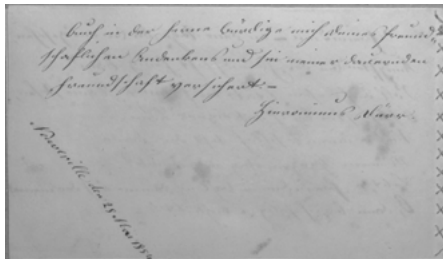 Auch in der Ferne würdige mich deines freund-
schaftlichen Andenkens und sei meiner dauernden
Freundschaft versichert. –
Hieronimus
Neuveville den 28 Mai 1854